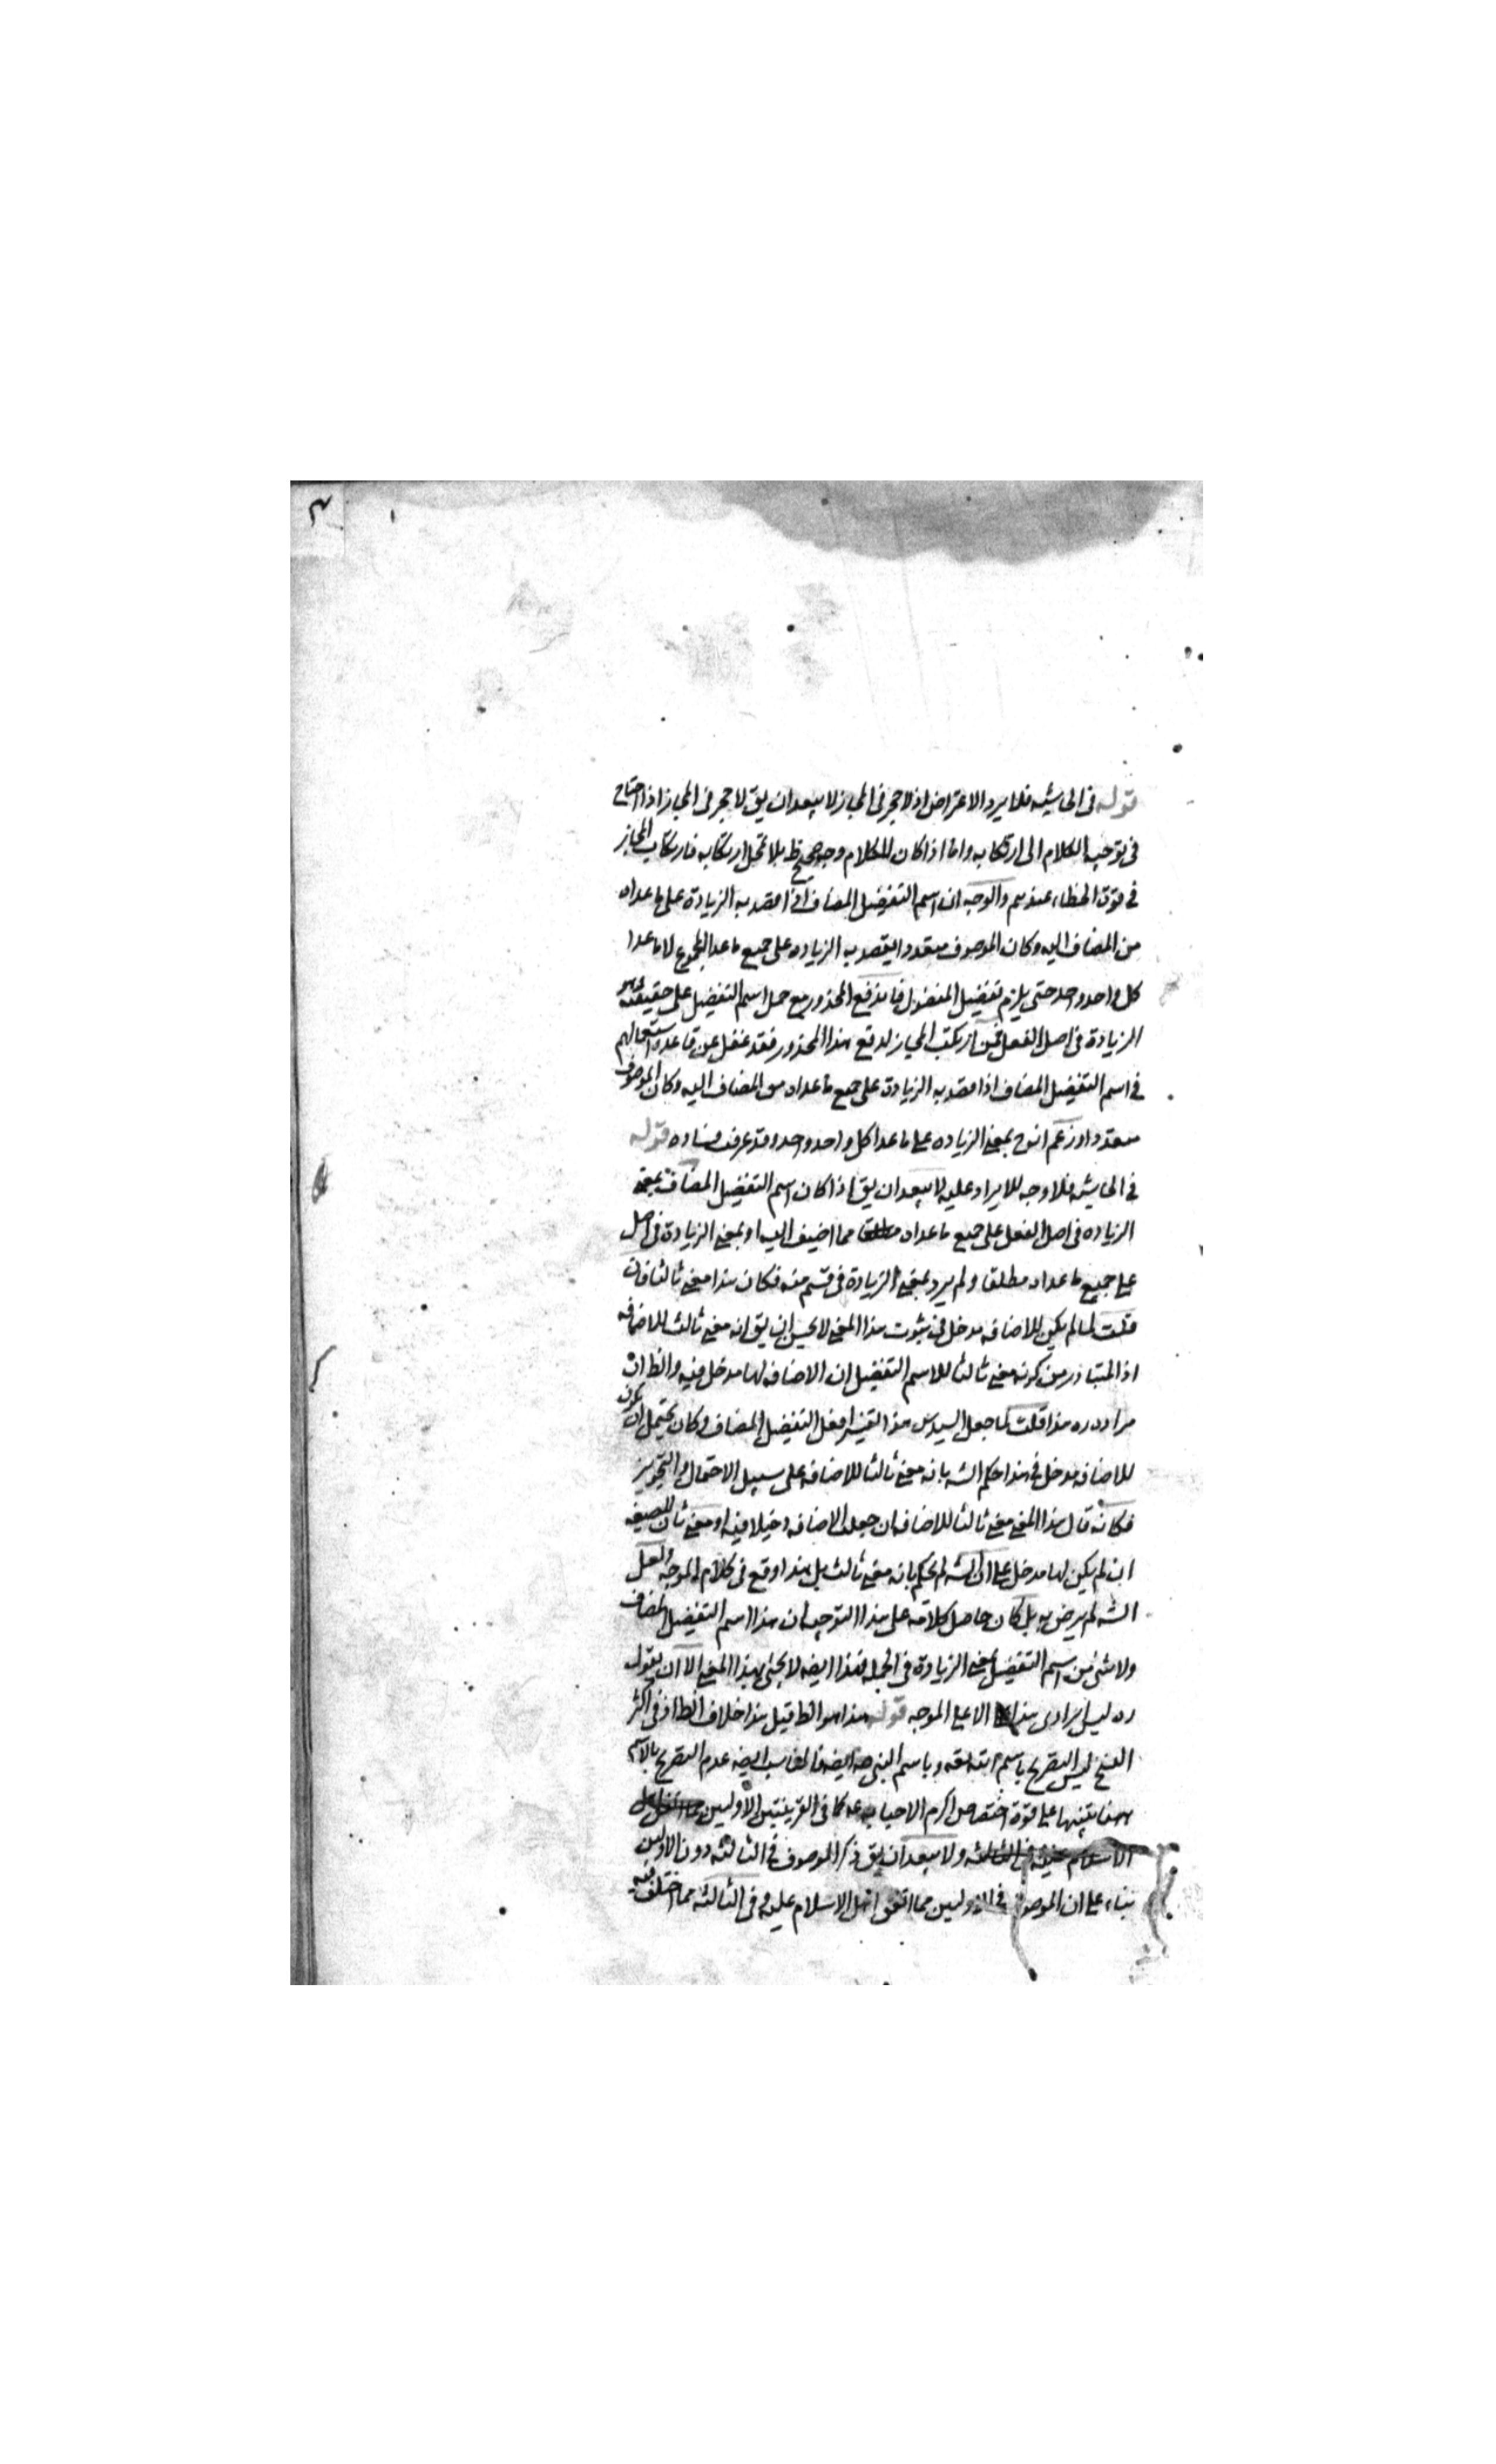 قوله في الحاشية فلا يرد الاعتراض اذ لا حجر في المجاز لا يبعد ان يق لا حجر في المجاز اذا احتاج
في توجيه الكلام الى ارتكابه واما اذا كان للكلام وجه صحيح ظ بلا تمحل ارتكابه فارتكاب المجاز
في قوة الخطاء عندهم والوجه ان اسم التفضيل المضاف اذا قصد به الزيادة على ما عداه
من المضاف اليه وكان الموصوف متعددا يقصد به الزيادة على جميع ما عدا المجموع لا ما عدا
كل واحد واحد حتى يلزم تفضيل المفضول فاندفع المحذور مع حمل اسم التفضيل على حقيقته وهو
الزيادة في اصل الفعل فمن ارتكب المجاز لدفع هذا المحذور فقد غفل عن قاعدة استعمالهم
في اسم التفضيل المضاف اذا قصد به الزيادة على جميع ما عداه من المضاف اليه وكان الموصوف
متعددا وزعم انه ح بمعنى الزيادة على ما عدا كل واحد واحد وقد عرفت فساده قوله
في الحاشية فلا وجه للايراد عليه لا يبعد ان يق اذا كان اسم التفضيل المضاف بمعنى
الزيادة في اصل الفعل على جميع ما عداه مما اضيف اليه او بمعنى الزيادة في اصل
على جميع ما عداه مطلقا ولم يرد بمعنى الزيادة في قسم منه فكان هذا معنى ثالثا فان
قلت لما لم يكن للاضافة مدخل في ثبوت هذا المعنى لا يحسن ان يق انه معنى ثالث للاضافة
اذ المتبادر من كونه معنى ثالثا للاسم التفضيل ان الاضافة لها مدخل فيه والظ ان
مراده ره هذا قلت لما جعل السيد هذا التفسير افعل التفضيل المضاف وكان يحتمل ان يكون
للاضافة مدخل في هذا حكم الشه بانه معنى ثالثا للاضافة على سبيل الاحتمال والتجويز
فكانه قال هذا المعنى معنى ثالثا للاضافة ان جعلت الاضافة دخيلا فيه او معنى ثان للصيغة
ان لم يكن لها مدخل على ان الشه لم يحكم بانه معنى ثالث بل هذا وقع في كلام الموجه ولعل
الشه لم يرض به بل كان حاصل كلامه على هذا التوجيه ان هذا اسم التفضيل المضاف
ولا شئ من اسم التفضيل بمعنى الزيادة في الجملة فهذا ايضه لا يجئ بهذا المعنى الا ان يقول
ره ليس ايرادى هذا الا على الموجه قوله هذا هو الظ قيل هذا خلاف الظ اذ في اكثر
النسخ ليس التصريح باسم الله تعه وباسم النبي صه ايضه فالمناسب ايضه عدم التصريح بالاسم
ههنا تنبيها على قوة اختصاص اكرم الاحباب به كما في القرينتين الاوليين
ولا يبعد ان يق ذكر الموصوف في الثالثة دون الاوليين
بناء على ان الموصوف في الاوليين مما اتفق اهل الاسلام عليه وفي الثالثة مما اختلف فيه